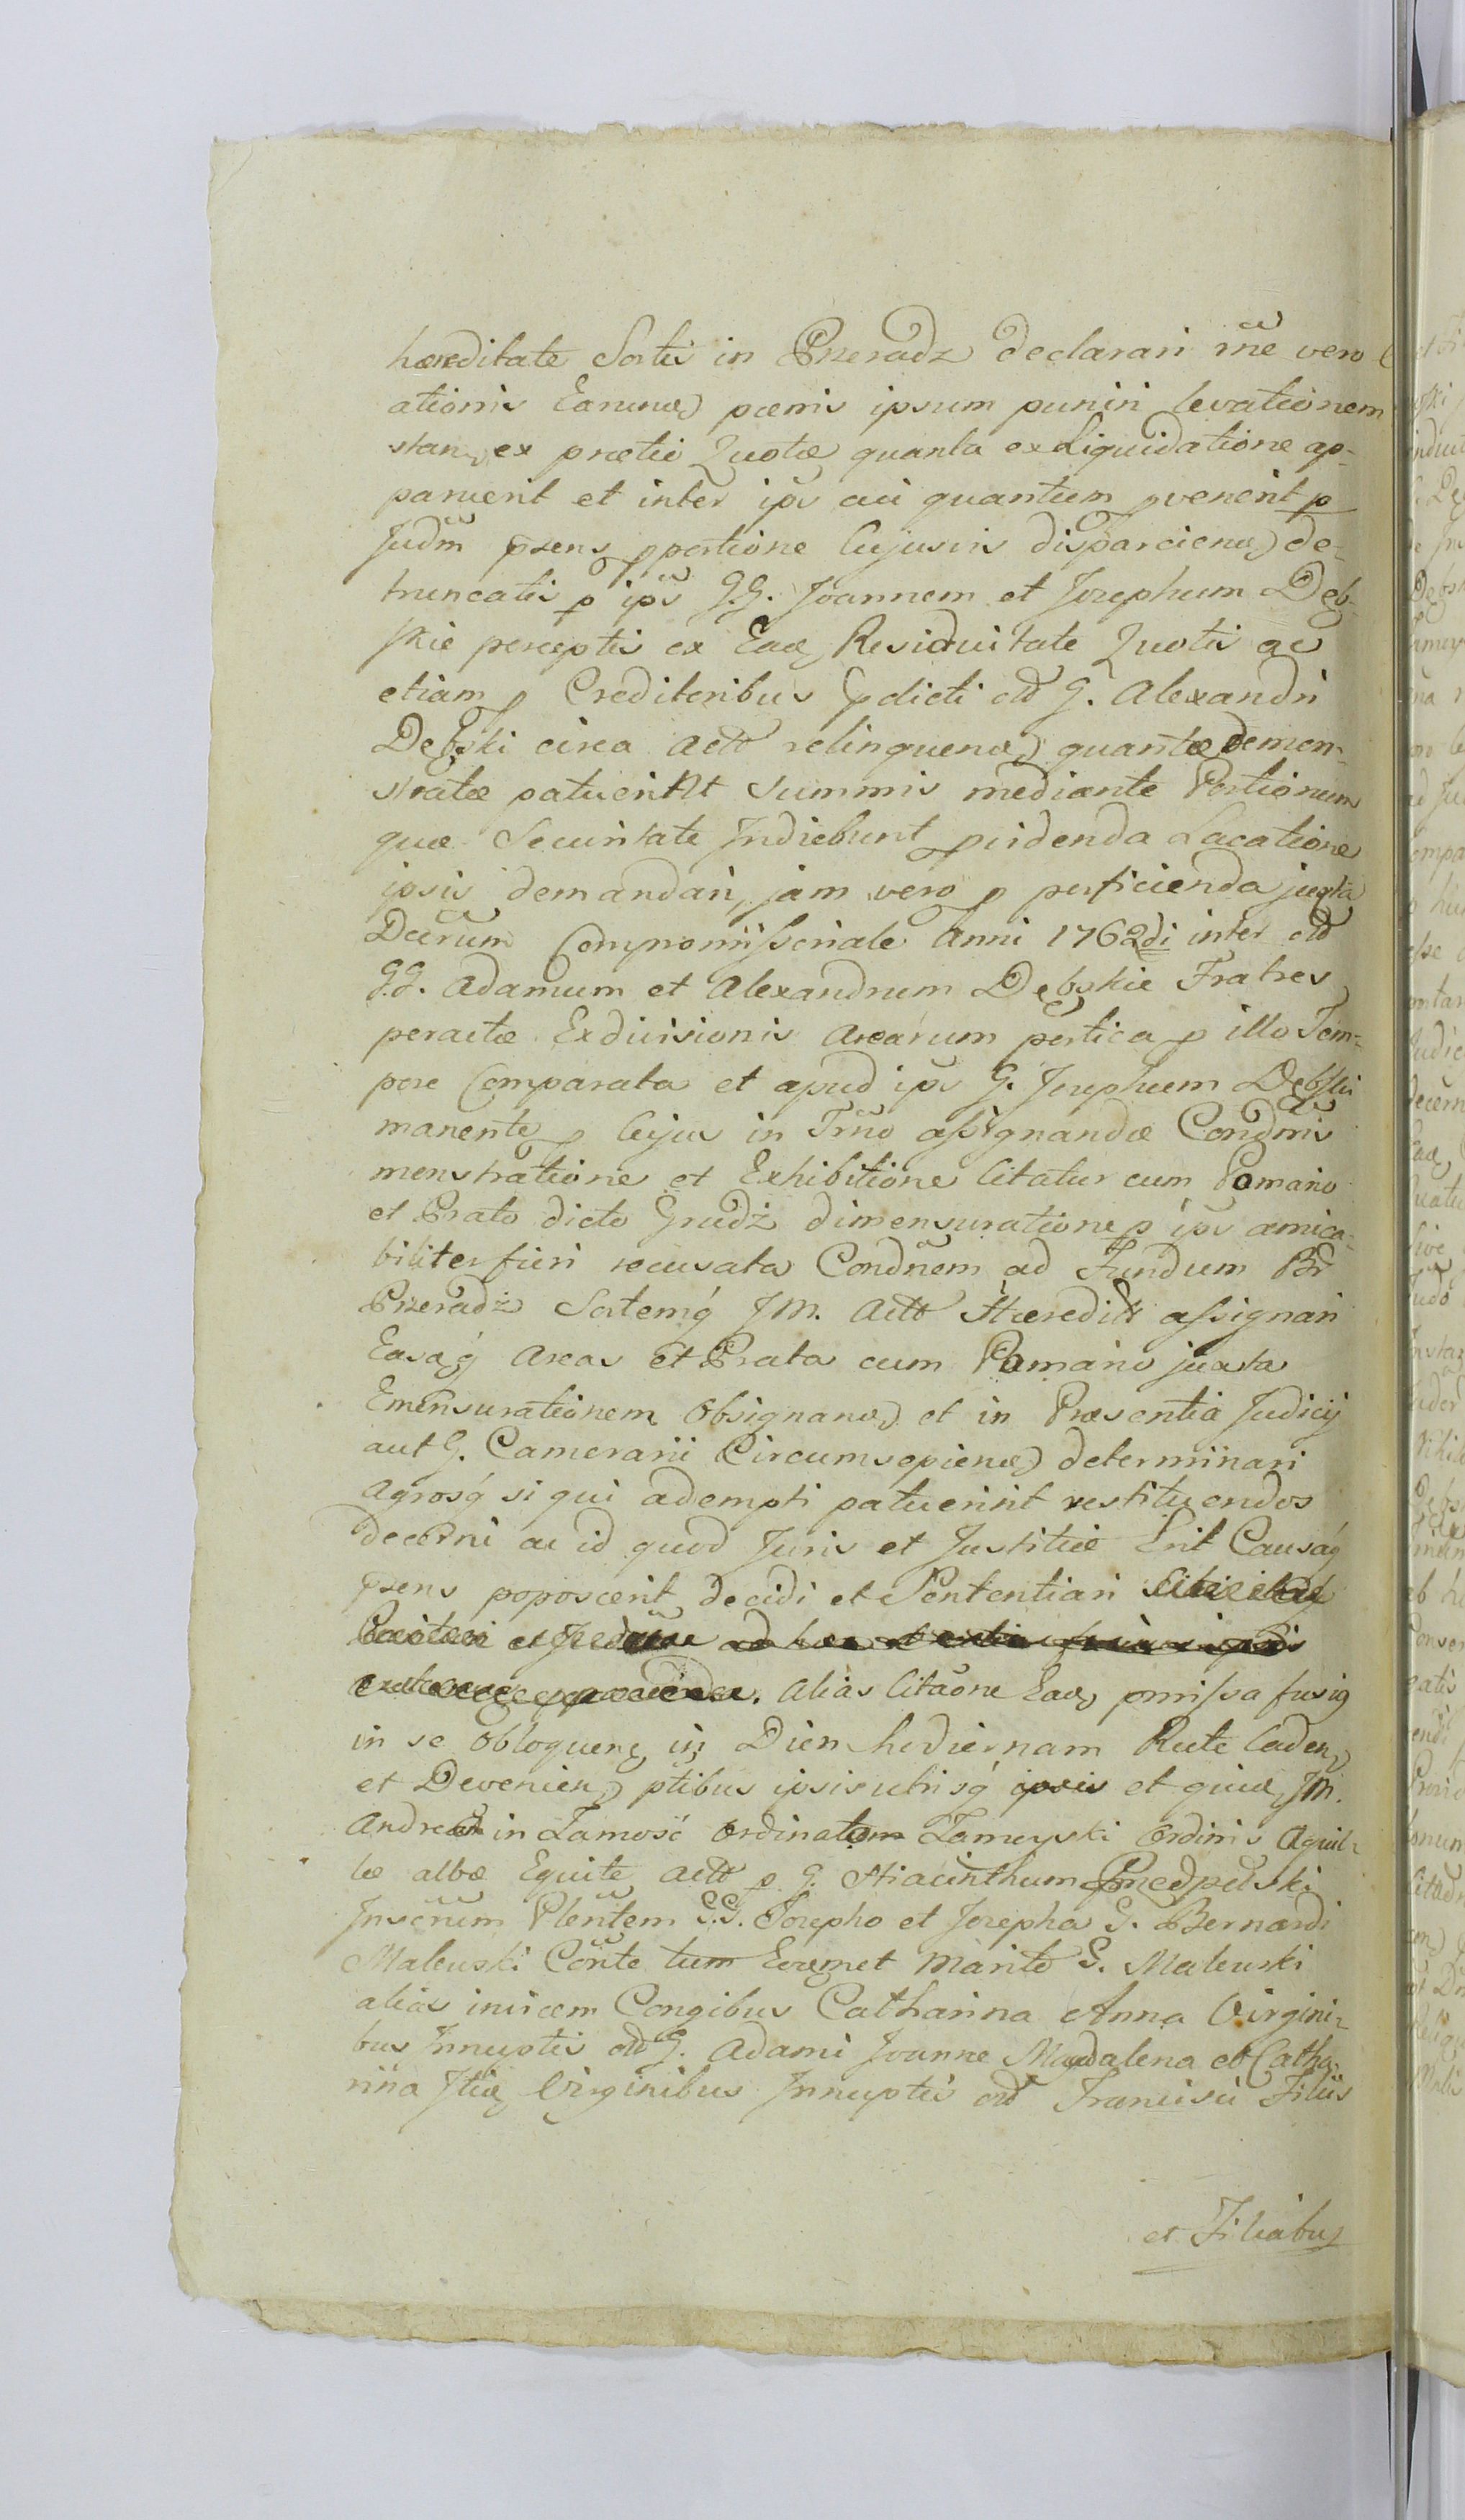 hæreditate Sortis in Przeradz declarari rñe vero
ationis Earund pœnis ipsum puniri levationem
stan, ex prætio Quotæ quanta ex Liquidatione ap-
paruerit et inter ips cui quantum pvenerit p
Judm psens pportione Cujusvis disparciend de-
truncatis p ips G.G. Joannem et Josephum Dęb-
skie perceptis ex Ead Residuitate Quotis ac
etiam p Creditoribus pdicti old G. Alexandri
Dębski circa Actt relinquend quantæ demon-
stratæ patuerint Summis mediante Portionum
quæ Securitate Indiebunt pvidenda Locatione
ipsis demandari, jam vero p perficienda juxta
Decrum Compromissoriale Anni 1762di inter old
G.G. Adamum et Alexandrum Dębskie Fratres
peractæ Exdivisionis Arearum pertica p illo Tem-
pore Comparata et apud ips G. Josephum Dębski
manente p Cujus in Trno assignandæ Condnis
monstratione et Exhibitione Citatur cum Pomario
et Prato dicto Grudź dimensuratione p ips amica-
biliter fieri recusata Condnem ad Fundum Br
Przeradz Sortemq JM. Actt Hæredit assignari
Easq Areas et Prata cum Pomario juxta
Emensurationem Obsignand et in Præsentia Judicij
aut G. Camerarii Circumsepiend determinari
Agrosq si qui adempti patuerint restituendos
decerni ac id quod Juris et Justitiæ Erit Causaq
psens poposcerit decidi et Sententiari
alias Citaõne Ead pmissa fusiq
in se Obloquen, in Diem hodiernam Rute Caden,
et Devenien, ptibus ipsis utrisq ipsis et quid JM.
Andrea in Zamość Ordinatom Zamoyski Ordinis Aquil-
læ albæ Equite Actt p G. Hiacinthum Przedpełski
Inscrum Plentem G.G. Josepho et Josepha G. Bernardi
Malewski Cönte tum Eorumet Marito G. Malewski
alias invicem Congibus Catharina Anna Virgini-
bus Innuptis old G. Adami Joanne Magdalena et Catha-
rina Itid Virginibus Innuptis old Francisci Filiis
et Filiabus